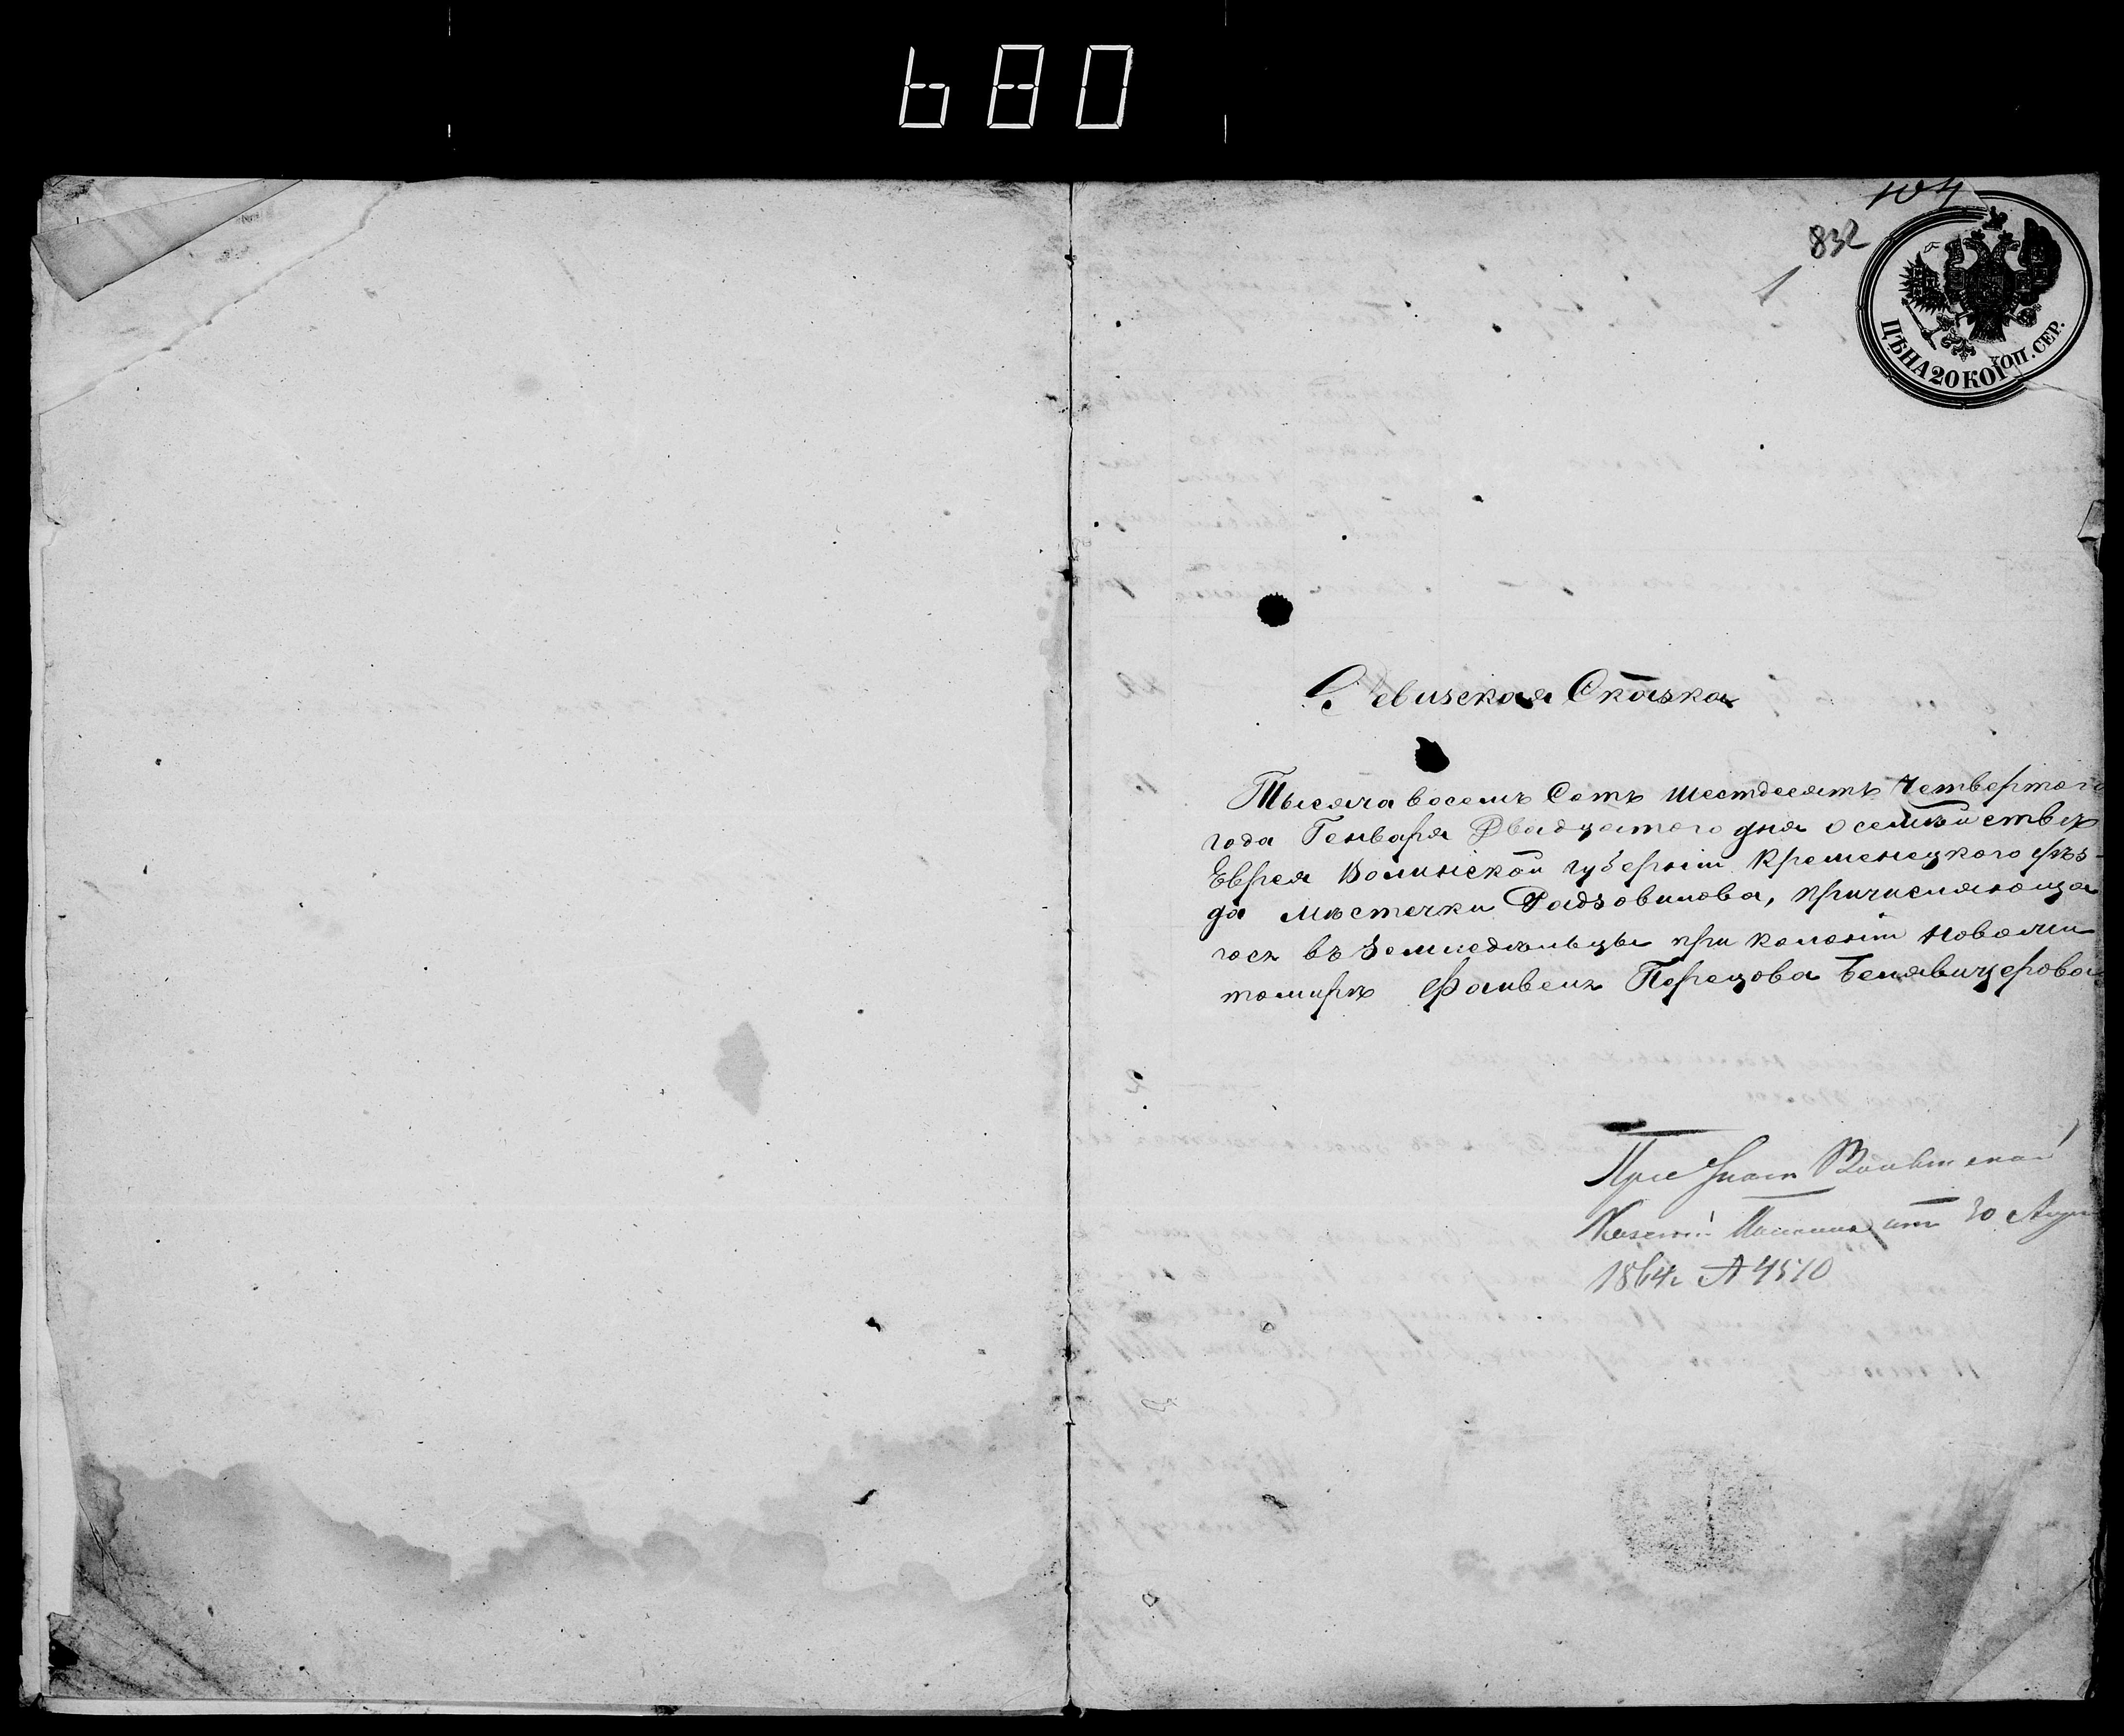 680
104
832
1
ЦѢНА 20 КОП. СЕР.
Ревизская Сказка
Тысяча восемъ Сотъ шестдесятъ Четвертого
года Генваря Двадцатого дня о семѣйствѣ
Еврея Волинской губерніи Кременецкого уѣз-
да Мѣстечки Радзовилова, причисляюща
гось въ Земледѣльцы при колоніи Новожи
томирѣ Файвель Перецова Белявицерова
При Указѣ Волынской
Казенной Палаты от 30 Апрѣ
1864г № 4510